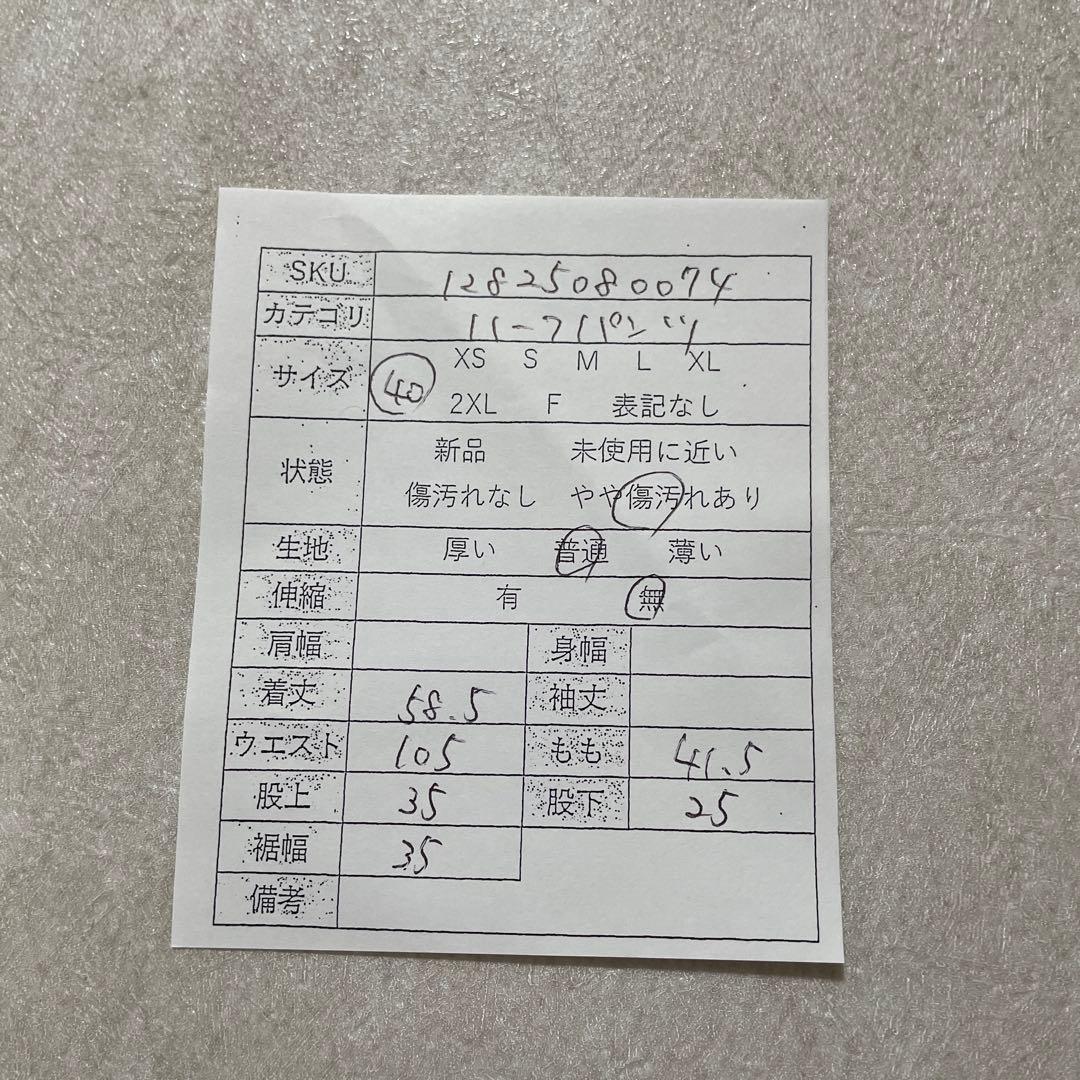 SKU 12825080074
カテゴリ ハーフパンツ
サイズ XS S M L XL
40 2XL F 表記なし
状態 新品 未使用に近い
傷汚れなし やや傷汚れあり
生地 厚い 普通 薄い
伸縮 有 無
肩幅 身幅
着丈 58.5 袖丈
ウエスト 105 もも 41.5
股上 35 股下 25
裾幅 35
備考